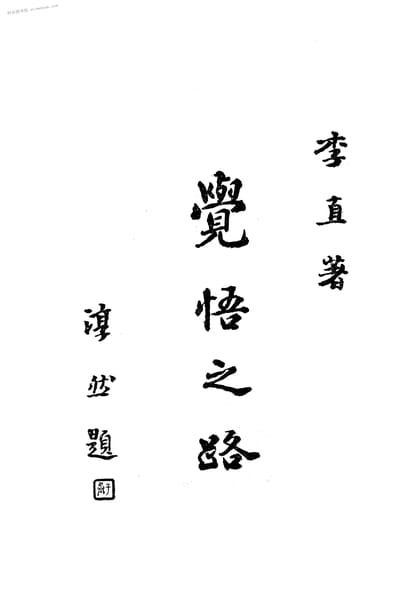 李直著
覺悟之路
淳然題